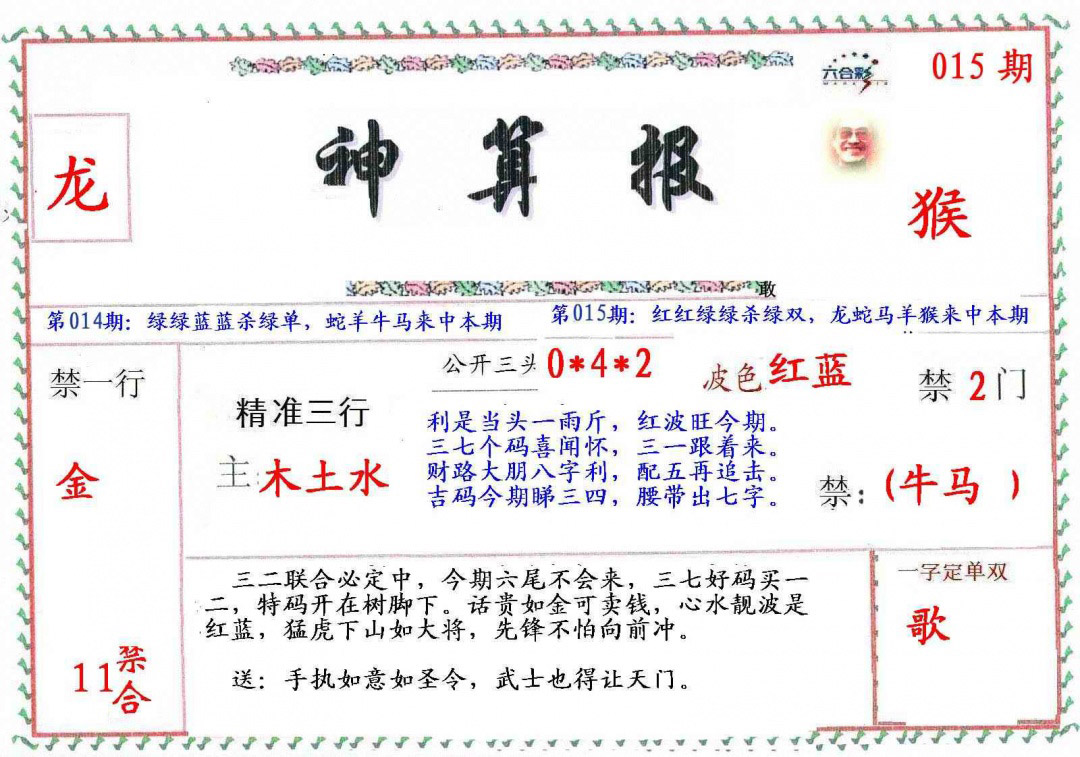 六合彩
015 期
龙
神算报
猴
敢
第014期：绿绿蓝蓝杀绿单，蛇羊牛马来中本期
第015期：红红绿绿杀绿双，龙蛇马羊猴来中本期
禁一行
金
11禁合
精准三行
主:木土水
公开三头 0*4*2
波色红蓝
利是当头一雨斤，红波旺今期。
三七个码喜闻怀，三一跟着来。
财路大朋八字利，配五再追击。
吉码今期睇三四，腰带出七字。
禁2门
禁：(牛马 )
三二联合必定中，今期六尾不会来，三七好码买一
二，特码开在树脚下。话贵如金可卖钱，心水靓波是
红蓝，猛虎下山如大将，先锋不怕向前冲。
送：手执如意如圣令，武士也得让天门。
一字定单双
歌